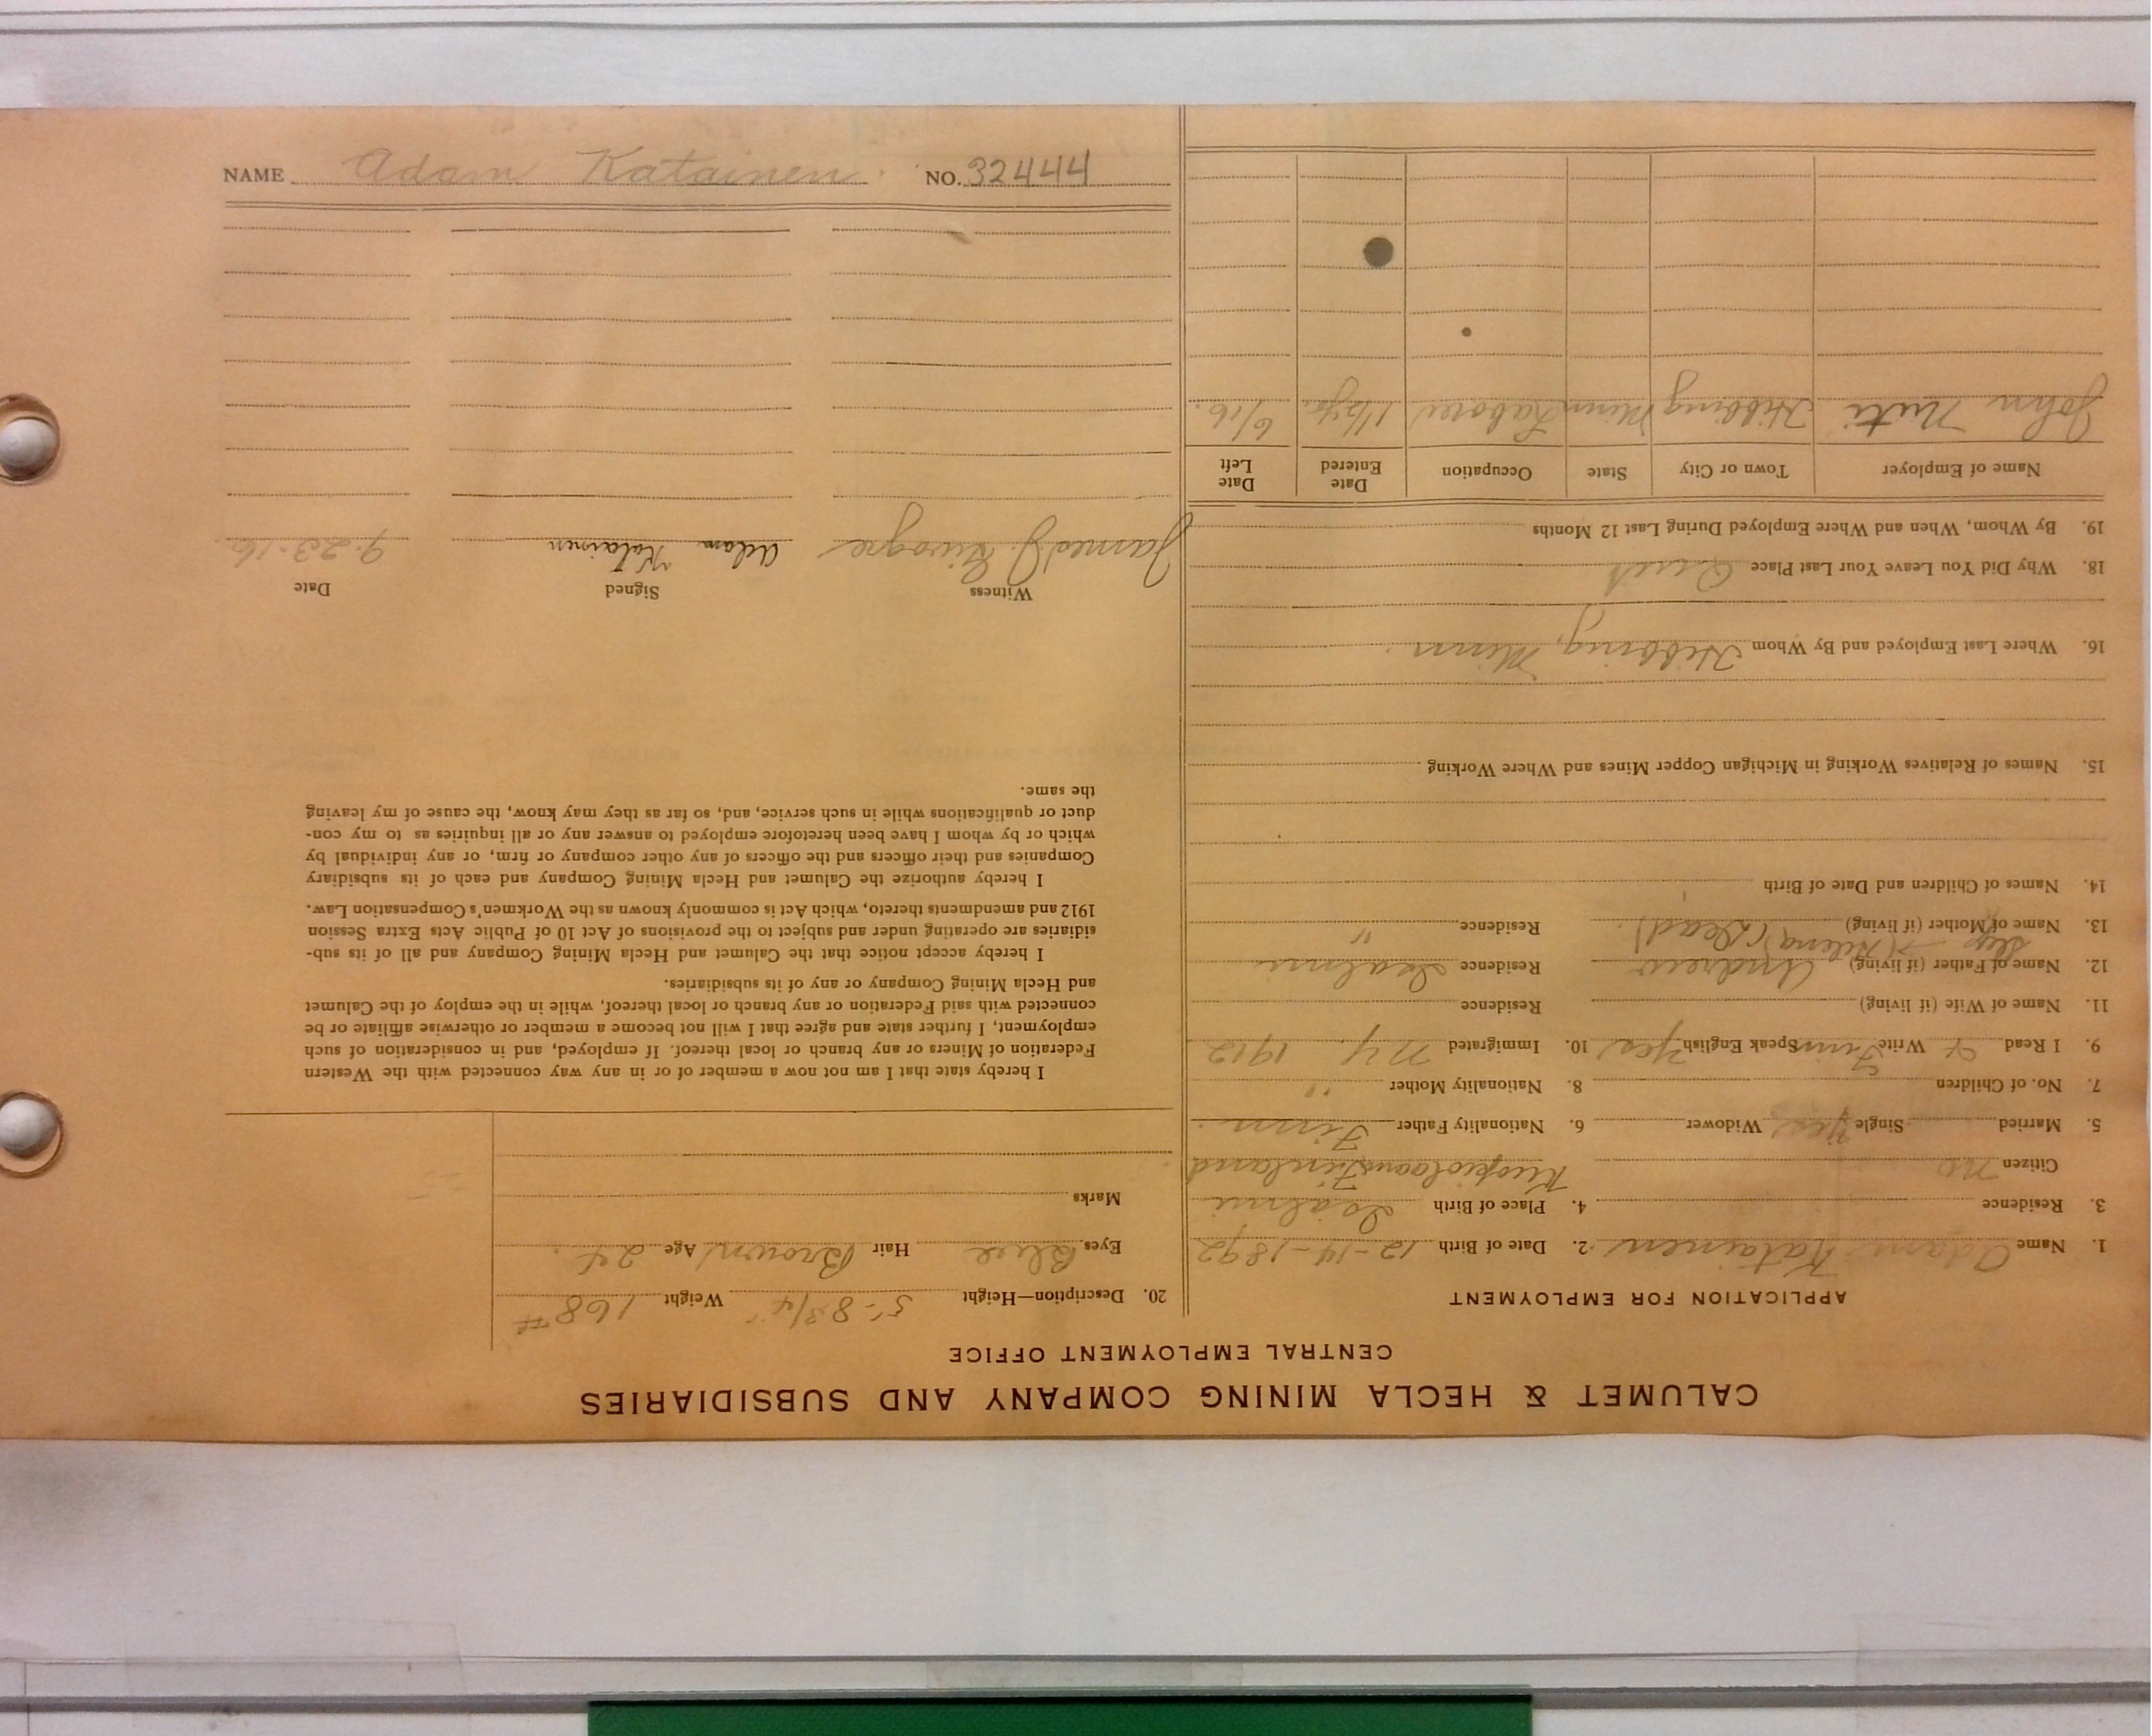 NAME Adam Katainen NO. 32444
CALUMET & HECLA MINING COMPANY AND SUBSIDIARIES
CENTRAL EMPLOYMENT OFFICE
APPLICATION FOR EMPLOYMENT
1. Name Adam Katainen 2. Date of Birth 12-14-1892
3. Residence 4. Place of Birth
Citizen no Finland
5. Married Single Yes Widower 6. Nationality Father Finn
7. No. of Children 8. Nationality Mother "
9. I Read & Write Finn Speak English Yes 10. Immigrated NY 1912
11. Name of Wife (if living) Residence
12. Name of Father (if living) Andrew Residence
13. Name of Mother (if living) Step (Helena) (Dead) Residence "
14. Names of Children and Date of Birth
15. Names of Relatives Working in Michigan Copper Mines and Where Working
16. Where Last Employed and By Whom Hibbing, Minn.
18. Why Did You Leave Your Last Place Quit
19. By Whom, When and Where Employed During Last 12 Months
Name of Employer Town or City State Occupation Date Entered Date Left
John Hibbing Minn Laborer 1½ yr. 6/16.
20. Description—Height 5'-8 3/4" Weight 168#
Eyes Blue Hair Brown Age 24.
Marks
I hereby state that I am not now a member of or in any way connected with the Western
Federation of Miners or any branch or local thereof. If employed, and in consideration of such
employment, I further state and agree that I will not become a member or otherwise affiliate or be
connected with said Federation or any branch or local thereof, while in the employ of the Calumet
and Hecla Mining Company or any of its subsidiaries.
I hereby accept notice that the Calumet and Hecla Mining Company and all of its sub-
sidiaries are operating under and subject to the provisions of Act 10 of Public Acts Extra Session
1912 and amendments thereto, which Act is commonly known as the Workmen's Compensation Law.
I hereby authorize the Calumet and Hecla Mining Company and each of its subsidiary
Companies and their officers and the officers of any other company or firm, or any individual by
which or by whom I have been heretofore employed to answer any or all inquiries as to my con-
duct or qualifications while in such service, and, so far as they may know, the cause of my leaving
the same.
Witness Signed Date
James J. Adam Katainen 9-23-16.